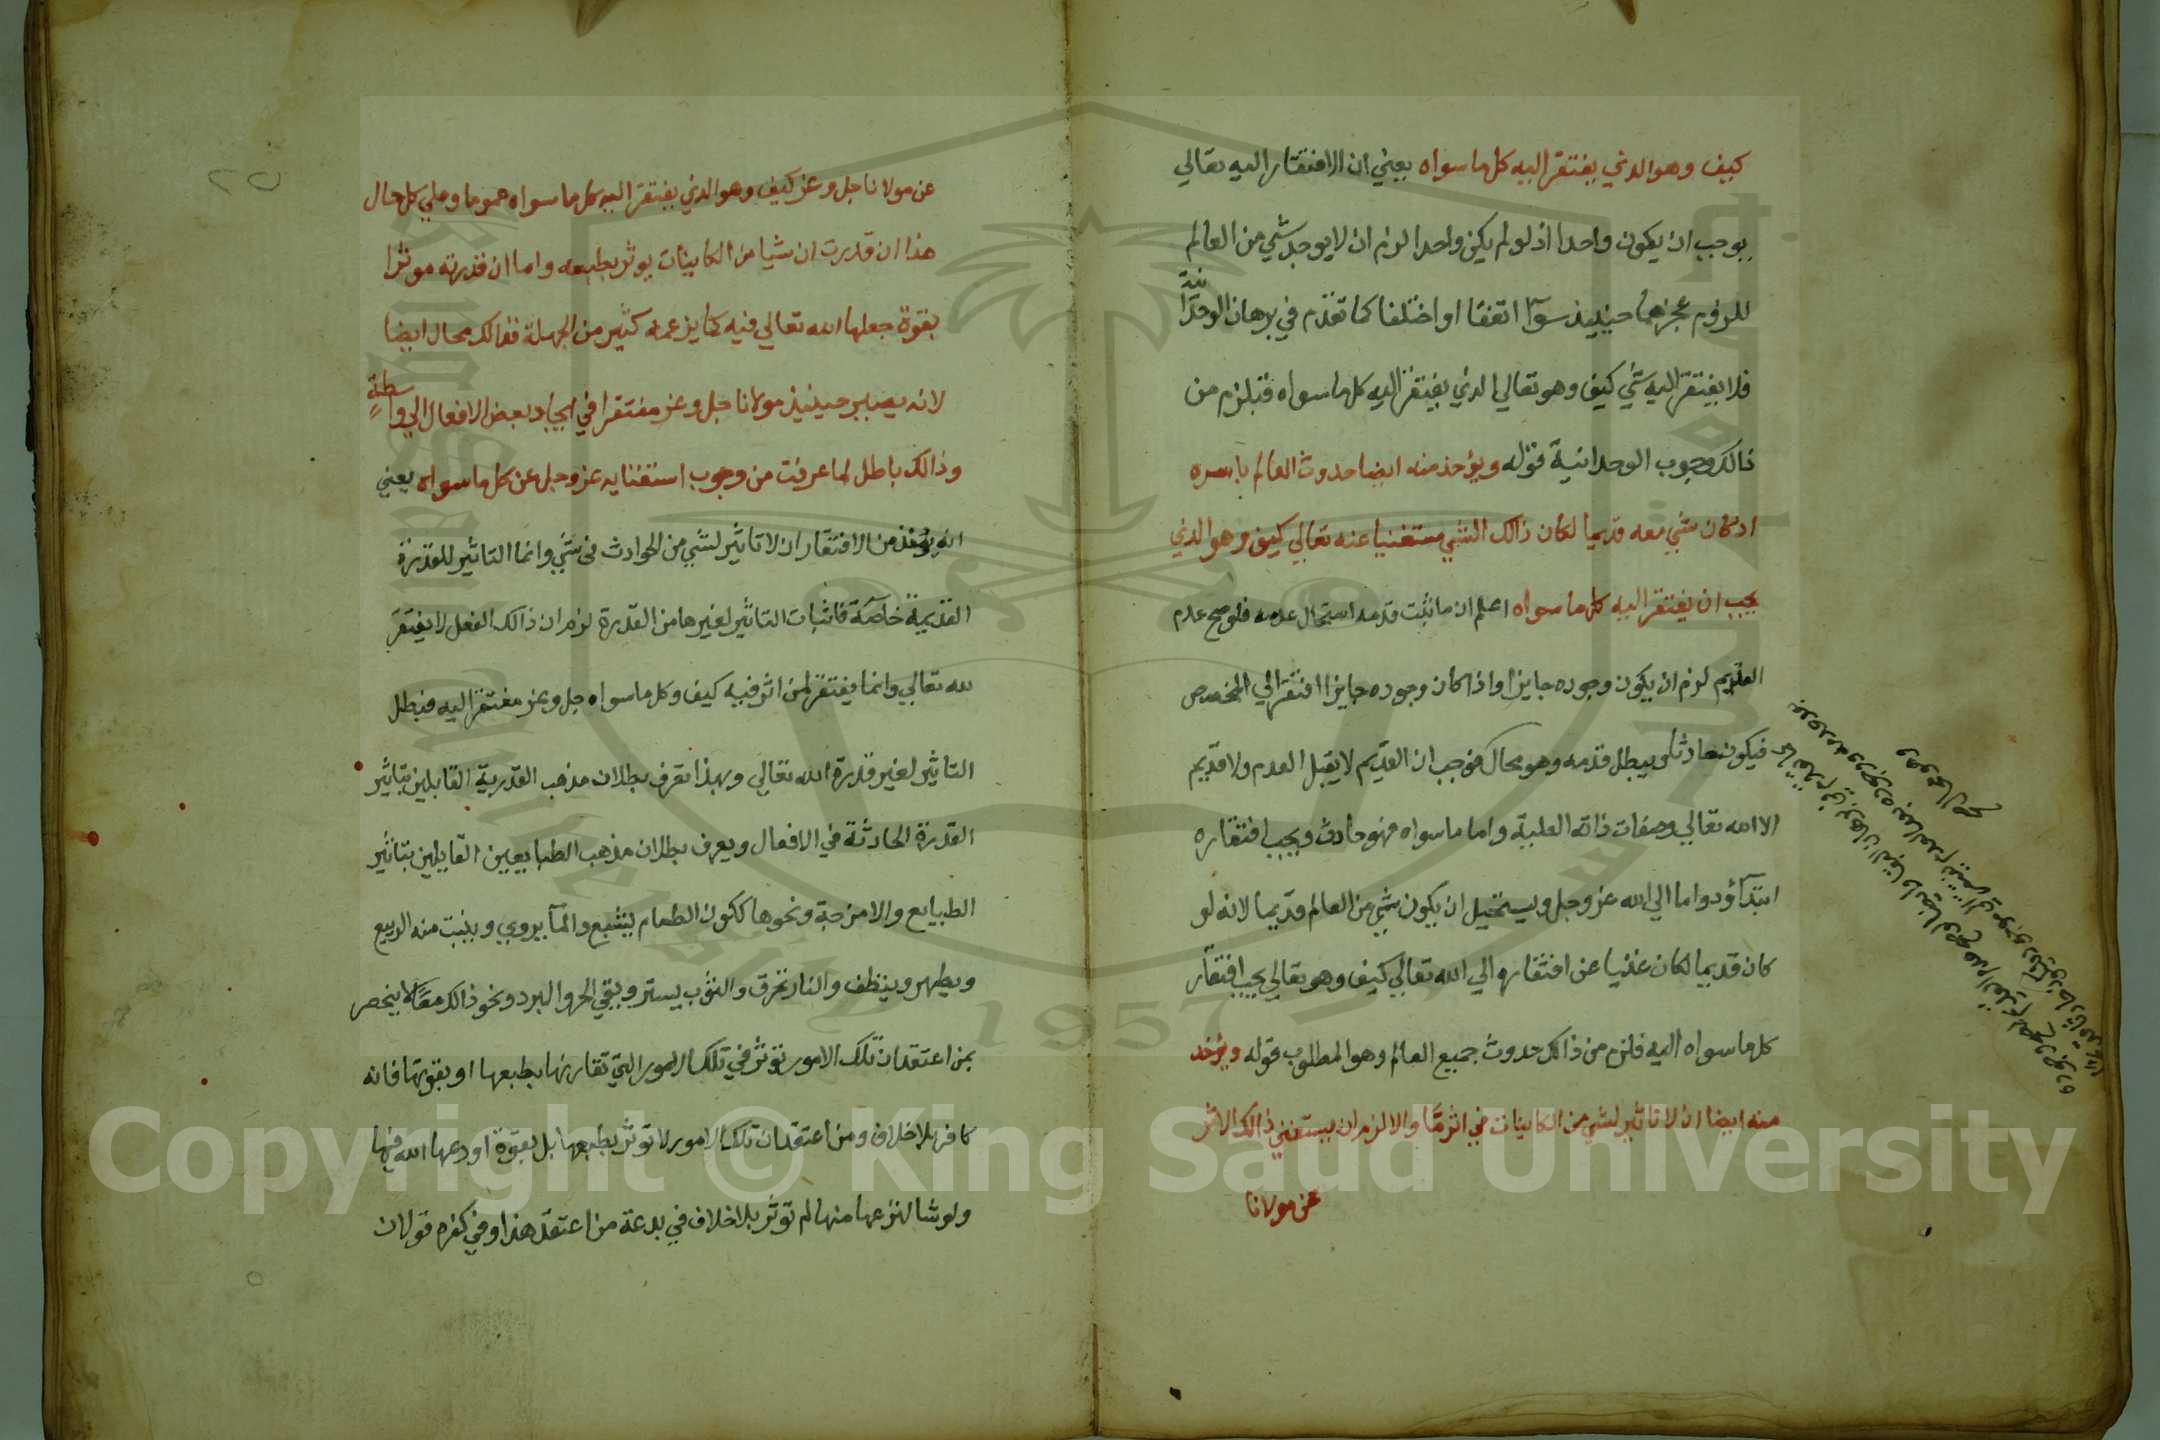 كيف وهو الذي يفتقر اليه كل ما سواه يعني ان الافتقار اليه تعالي
يوجب ان يكون واحدا اذ لو لم يكن واحدا لزم ان لا يوجد شي من العالم
للزوم عجزهما حينيذ سوآ اتفقا او اختلفا كما تقدم في برهان الوحدانية
فلا يفتقر اليه شي كيف وهو تعالي الذي يفتقر اليه كل ما سواه فيلزم من
ذالك وجوب الوحدانية قوله ويؤخذ منه ايضا حدوث العالم باسره
اذ لو كان شي معه قديما لكان ذالك الشي مستغنيا عنه تعالي كيف وهو الذي
يجب ان يفتقر اليه كل ما سواه اعلم ان ما ثبت قدمه استحال عدمه فلو صح عدم
القديم لزم ان يكون وجوده جايزا واذا كان وجوده جايزا افتقر الي المخصص
فيكون حادثا ويبطل قدمه وهو محال فوجب ان القديم لا يقبل العدم ولا قديم
الا الله تعالي وصفات ذاته العلية واما ما سواه فهو حادث ويجب افتقاره
ابتدآ ودواما الي الله عز وجل ويستحيل ان يكون شي من العالم قديما لانه لو
كان قديما لكان غنيا عن افتقاره الي الله تعالي كيف وهو تعالي يجب افتقار
كل ما سواه اليه فلزم من ذالك حدوث جميع العالم وهو المطلوب قوله ويؤخذ
منه ايضا ان لا تاثير لشي من الكاينات في اثر مّا والا لزم ان يستغني ذالك الاثر
عن مولانا
٢٥
عن مولانا جل وعز كيف وهو الذي يفتقر اليه كل ما سواه عموما وعلي كل حال
هذا ان قدرت ان شيا من الكاينات يوثر بطبعه واما ان قدرته موثرا
بقوة جعلها الله تعالي فيه كما يزعمه كثير من الجهلة فذالك محال ايضا
لانه يصير حينيذ مولانا جل وعز مفتقرا في ايجاد بعض الافعال الي واسطة
وذالك باطل لما عرفت من وجوب استغنايه عز وجل عن كل ما سواه يعني
انه يؤخذ من الافتقار ان لا تاثير لشي من الحوادث في شي وانما التاثير للقدرة
القديمة خاصة فاثبات التاثير لغيرها من القدرة لزم ان ذالك الفعل لا يفتقر
لله تعالي وانما يفتقر لمن اثر فيه كيف وكل ما سواه جل وعز مفتقر اليه فبطل
التاثير لغير قدرة الله تعالي وبهذا تعرف بطلان مذهب القدرية القايلين بتاثير
القدرة الحادثة في الافعال ويعرف بطلان مذهب الطبايعيين القايلين بتاثير
الطبايع والامزجة ونحوها ككون الطعام يشبع والمآ يروي وينبت منه الربيع
ويطهر وينظف والنار تحرق والثوب يستر ويقي الحر والبرد ونحو ذالك مما لا ينحصر
بمن اعتقد ان تلك الامور توثر في تلك الامور التي تقارنها بطبعها او بقوتها فانه
كافر بلا خلاف ومن اعتقد ان تلك الامور لا توثر بطبعها بل بقوة اودعها الله فيها
ولو شا لنزعها منها لم توثر بلا خلاف في بدعة من اعتقد هذا وفي كفره قولان
Copyright © King Saud University
1957